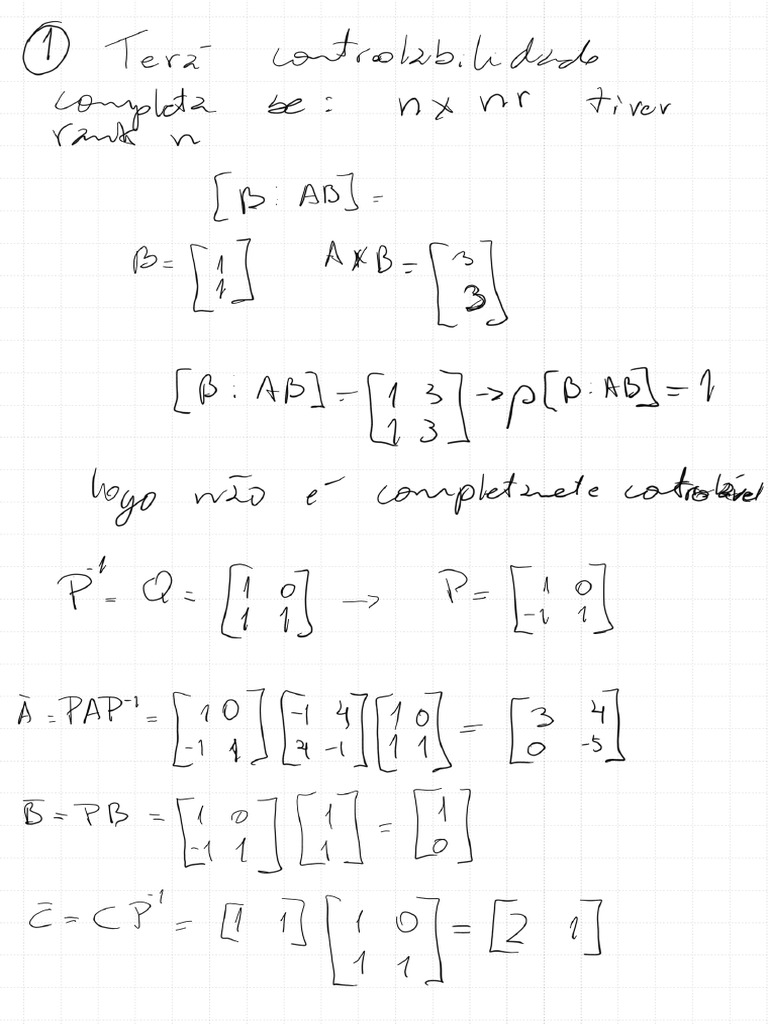 ① Terá controlabilidade
completa se: n x nr tiver
rank n
[B : AB] =
B = [1; 1] A x B = [3; 3]
[B : AB] = [1 3; 1 3] → ρ[B : AB] = 1
logo não é completanete controlável
P⁻¹ = Q = [1 0; 1 1] → P = [1 0; -1 1]
Ā = PAP⁻¹ = [1 0; -1 1] [-1 4; 4 -1] [1 0; 1 1] = [3 4; 0 -5]
B̄ = PB = [1 0; -1 1] [1; 1] = [1; 0]
C̄ = CP⁻¹ = [1 1] [1 0; 1 1] = [2 1]